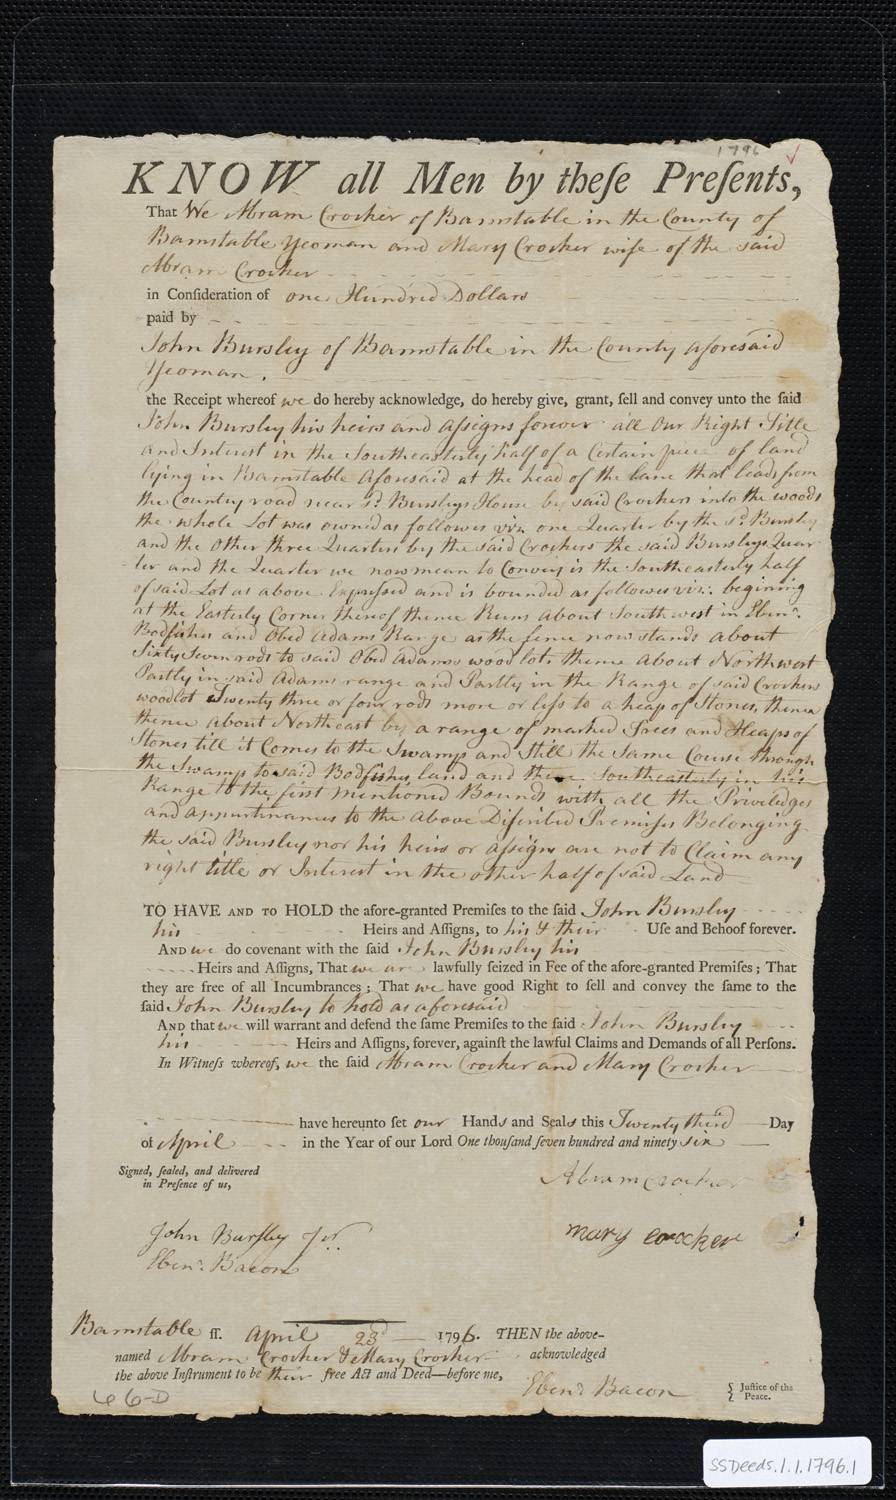 1796
KNOW all Men by theſe Preſents,
That We Abram Crocker of Barnstable in the County of
Barnstable Yeoman and Mary Crocker wife of the said
Abram Crocker
in Conſideration of one Hundred Dollars
paid by
John Bursley of Barnstable in the County aforesaid
Yeoman.
the Receipt whereof we do hereby acknowledge, do hereby give, grant, ſell and convey unto the ſaid
John Bursley his heirs and aſsigns forever all Our Right Title
and Interest in the Southeasterly half of a Certain piece of land
lying in Barnstable aforesaid at the head of the lane that leads from
the County road near sd. Bursleys House by said Crockers into the woods
the whole Lot was owned as follows viz. one Quarter by the sd Bursley
and the other three Quarters by the said Crockers the said Bursleys Quar-
ter and the Quarter we now mean to Convey is the Southeasterly half
of said Lot as above Expreſsed and is bounded as follows viz: begining
at the Easterly Corner thereof thence Runs about Southwest in Ebenr.
Bodfishes and Obed Adams Range as the fence now stands about
Sixty Seven rods to said Obed Adams wood lot, thence about Northwest
Partly in said Adams range and Partly in the Range of said Crockers
woodlot Twenty three or four rods more or leſs to a heap of Stones, thence
thence about Northeast by a range of marked Trees and Heaps of
Stones till it Comes to the Swamp and Still the Same Course through
the Swamp to said Bodfishes land and thence Southeasterly in his
Range to the first mentioned Bounds with all the Priviledges
and appurtinances to the above Discribed Premises Belonging
the said Bursley nor his heirs or aſsigns are not to Claim any
right title or Interest in the other half of said Land
TO HAVE AND TO HOLD the afore-granted Premiſes to the ſaid John Bursley
his Heirs and Aſſigns, to his & their Uſe and Behoof forever.
AND we do covenant with the ſaid John Bursley his
Heirs and Aſſigns, That we are lawfully ſeized in Fee of the afore-granted Premiſes; That
they are free of all Incumbrances; That we have good Right to ſell and convey the ſame to the
ſaid John Bursley to hold as aforesaid
AND that we will warrant and defend the ſame Premiſes to the ſaid John Bursley
his Heirs and Aſſigns, forever, againſt the lawful Claims and Demands of all Perſons.
In Witneſs whereof, we the ſaid Abram Crocker and Mary Crocker
have hereunto ſet our Hands and Seals this Twenty third Day
of April in the Year of our Lord One thouſand ſeven hundred and ninety six
Signed, ſealed, and delivered
in Preſence of us,
Abram Crocker
John Bursley Jur.
mary crocker
Ebenr. Bacon
Barnstable ſſ. April 23d 1796. THEN the above-
named Abram Crocker & Mary Crocker acknowledged
the above Inſtrument to be their free Act and Deed—before me,
Ebenr. Bacon } Juſtice of the
Peace.
66-D
SSDeeds.1.1.1796.1